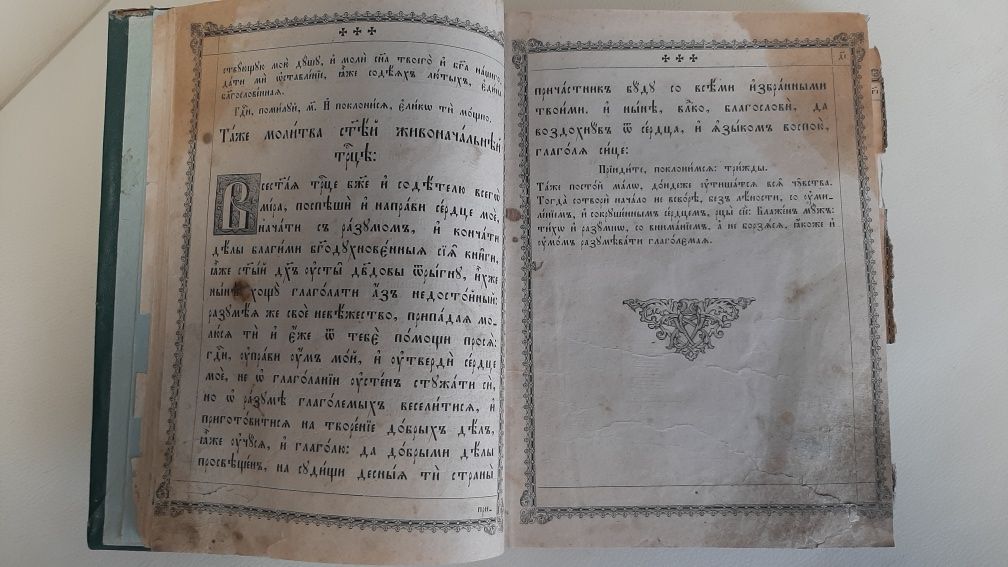 ствꙋющꙋю мою̀ дꙋ́шꙋ, и҆ молѝ сн҃а твоего̀ и҆ бг҃а на́шего
да́ти мѝ ѡ҆ставле́нїе, ꙗ҆́же содѣ́ѧхъ лю́тыхъ, є҆ди́на
благослове́ннаѧ.
Гдⷭ҇и, поми́лꙋй, м҃. И҆ поклони́сѧ, є҆ли́кѡ тѝ мо́щно.
Та́же моли́тва ст҃ѣ́й живонача́льнѣй
трⷪ҇цѣ:
Всест҃а́ѧ трⷪ҇це бж҃е и҆ содѣ́телю всегѡ̀
мі́ра, поспѣшѝ и҆ напра́ви се́рдце моѐ,
нача́ти съ ра́зꙋмомъ, и҆ конча́ти
дѣ́лы благи́ми бг҃одꙋхнове́нныѧ сїѧ̑ кни̑ги,
ꙗ҆̀же ст҃ы́й дх҃ъ ᲂу҆сты̑ дв҃довы ѿры́гнꙋ, и҆́хже
ны́нѣ хощꙋ̀ глаго́лати а҆́зъ недосто́йный:
разꙋмѣ́ѧ же своѐ невѣ́жество, припа́даѧ мо-
лю́сѧ тѝ и҆ є҆́же ѿ тебє̀ по́мощи просѧ̀:
гдⷭ҇и, ᲂу҆пра́ви ᲂу҆́мъ мо́й, и҆ ᲂу҆твердѝ се́рдце
моѐ, не ѡ҆ глаго́ланїи ᲂу҆сте́нъ стꙋжа́ти сѝ,
но ѡ҆ ра́зꙋмѣ глаго́лемыхъ весели́тисѧ, и҆
пригото́витисѧ на творе́нїе до́брыхъ дѣ́лъ,
ꙗ҆̀же ᲂу҆чꙋ́сѧ, и҆ глаго́лю: да до́брыми дѣ́лы
просвѣще́нъ, на сꙋди́щи десны́ѧ тѝ страны̀
при-
прича́стникъ бꙋ́дꙋ со всѣ́ми и҆збра́нными
твои́ми. и҆ ны́нѣ, влⷣко, благословѝ, да
воздохнꙋ́въ ѿ се́рдца, и҆ ѧ҆зы́комъ воспою̀,
глаго́лѧ си́це:
Прїиди́те, поклони́мсѧ: три́жды.
Та́же посто́й ма́лѡ, до́ндеже ᲂу҆тиша́тсѧ всѧ̑ чꙋ̑вства.
Тогда̀ сотворѝ нача́ло не вско́рѣ, без̾ лѣ́ности, со ᲂу҆ми-
ле́нїемъ, и҆ сокрꙋше́ннымъ се́рдцемъ, рцы̀ сїѐ: Бл҃же́нъ мꙋ́жъ:
ти́хѡ и҆ разꙋ́мнѡ, со внима́нїемъ, а҆ не борзѧ́сѧ, ꙗ҆́коже и҆
ᲂу҆мо́мъ разꙋмѣва́ти глаго́лемаѧ.